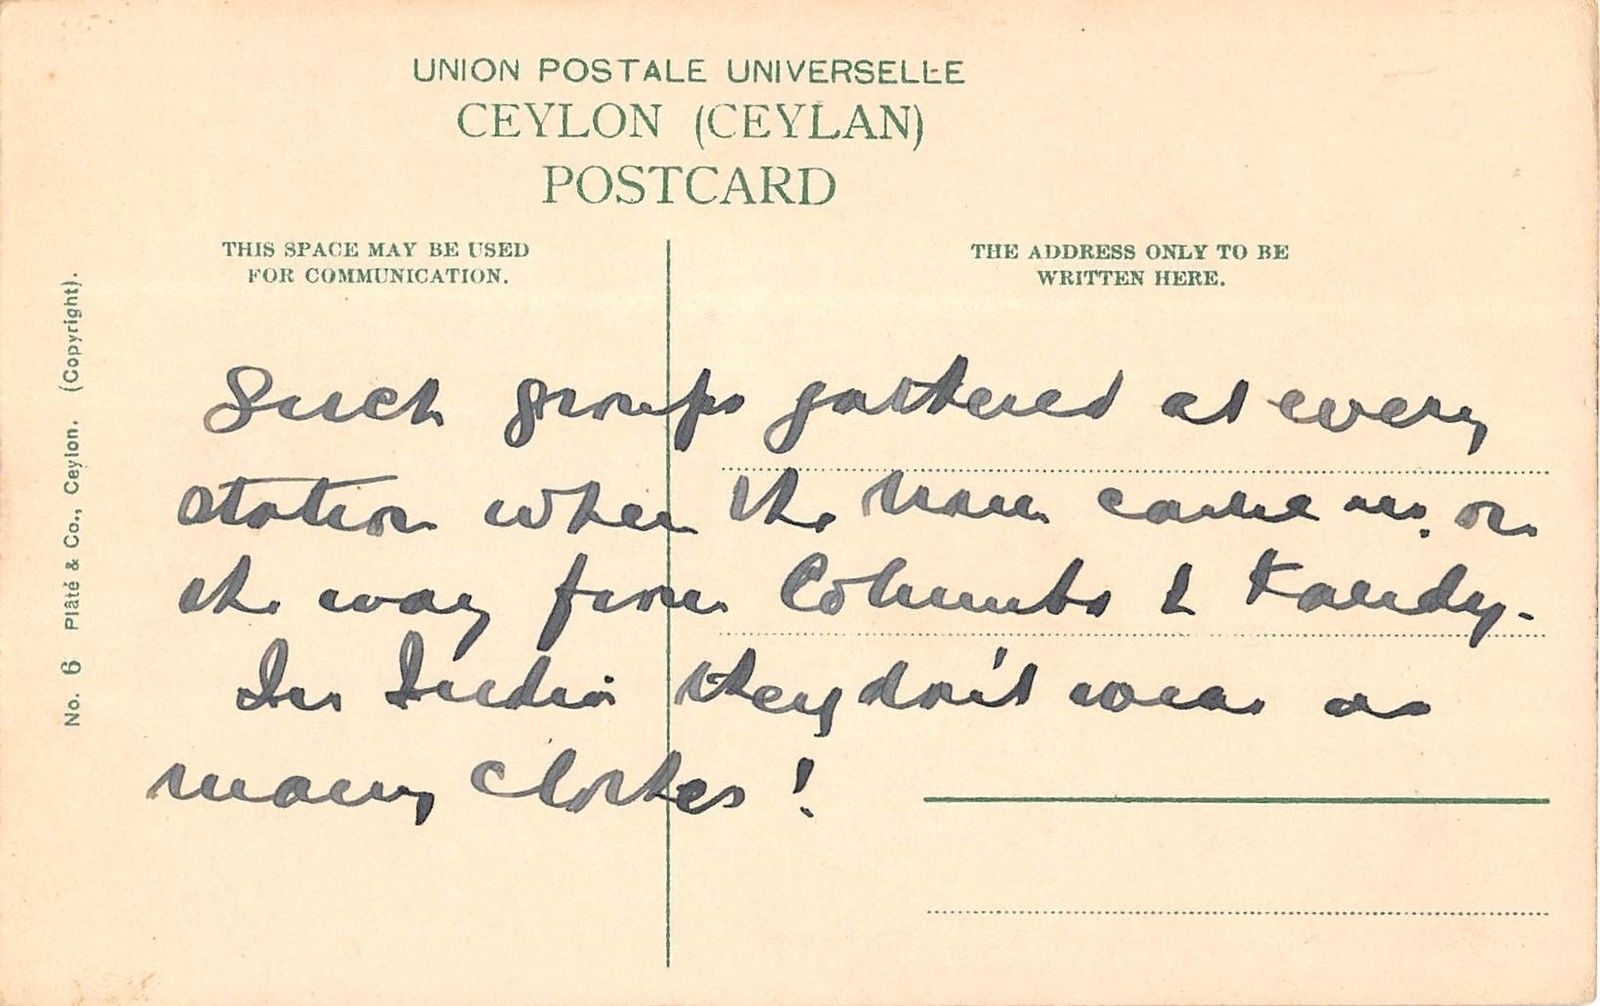 UNION POSTALE UNIVERSELLE
CEYLON (CEYLAN)
POSTCARD
THIS SPACE MAY BE USED
FOR COMMUNICATION.
THE ADDRESS ONLY TO BE
WRITTEN HERE.
No. 6 Plâté & Co., Ceylon. (Copyright).
Such groups gathered at every
station when the train came in, on
the way from Columbo & Kandy.
In India they don't wear as
many clothes!